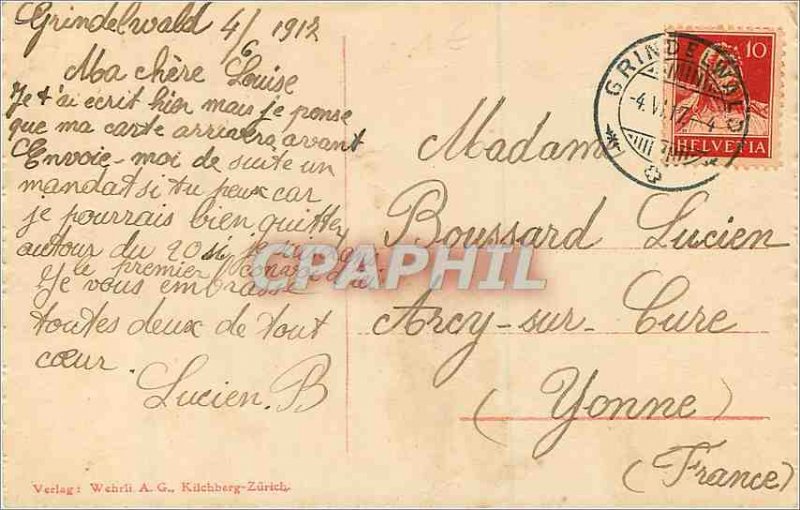 Grindelwald 4/6 1917
Ma chère Louise
Je t'ai écrit hier mais je pense
que ma carte arrivera avant
Envoie-moi de suite un
mandat si tu peux car
je pourrais bien quitter
autour du 20 si je suis dans
le premier convoi d'ici
Je vous embrasse
toutes deux de tout
cœur.
Lucien. B
Verlag: Wehrli A. G., Kilchberg-Zürich.
Madame
Boussard Lucien
Arcy-sur-Cure
(Yonne)
(France)
GRINDELWALD
-4.VI.17.-4
10
HELVETIA
CPAPHIL